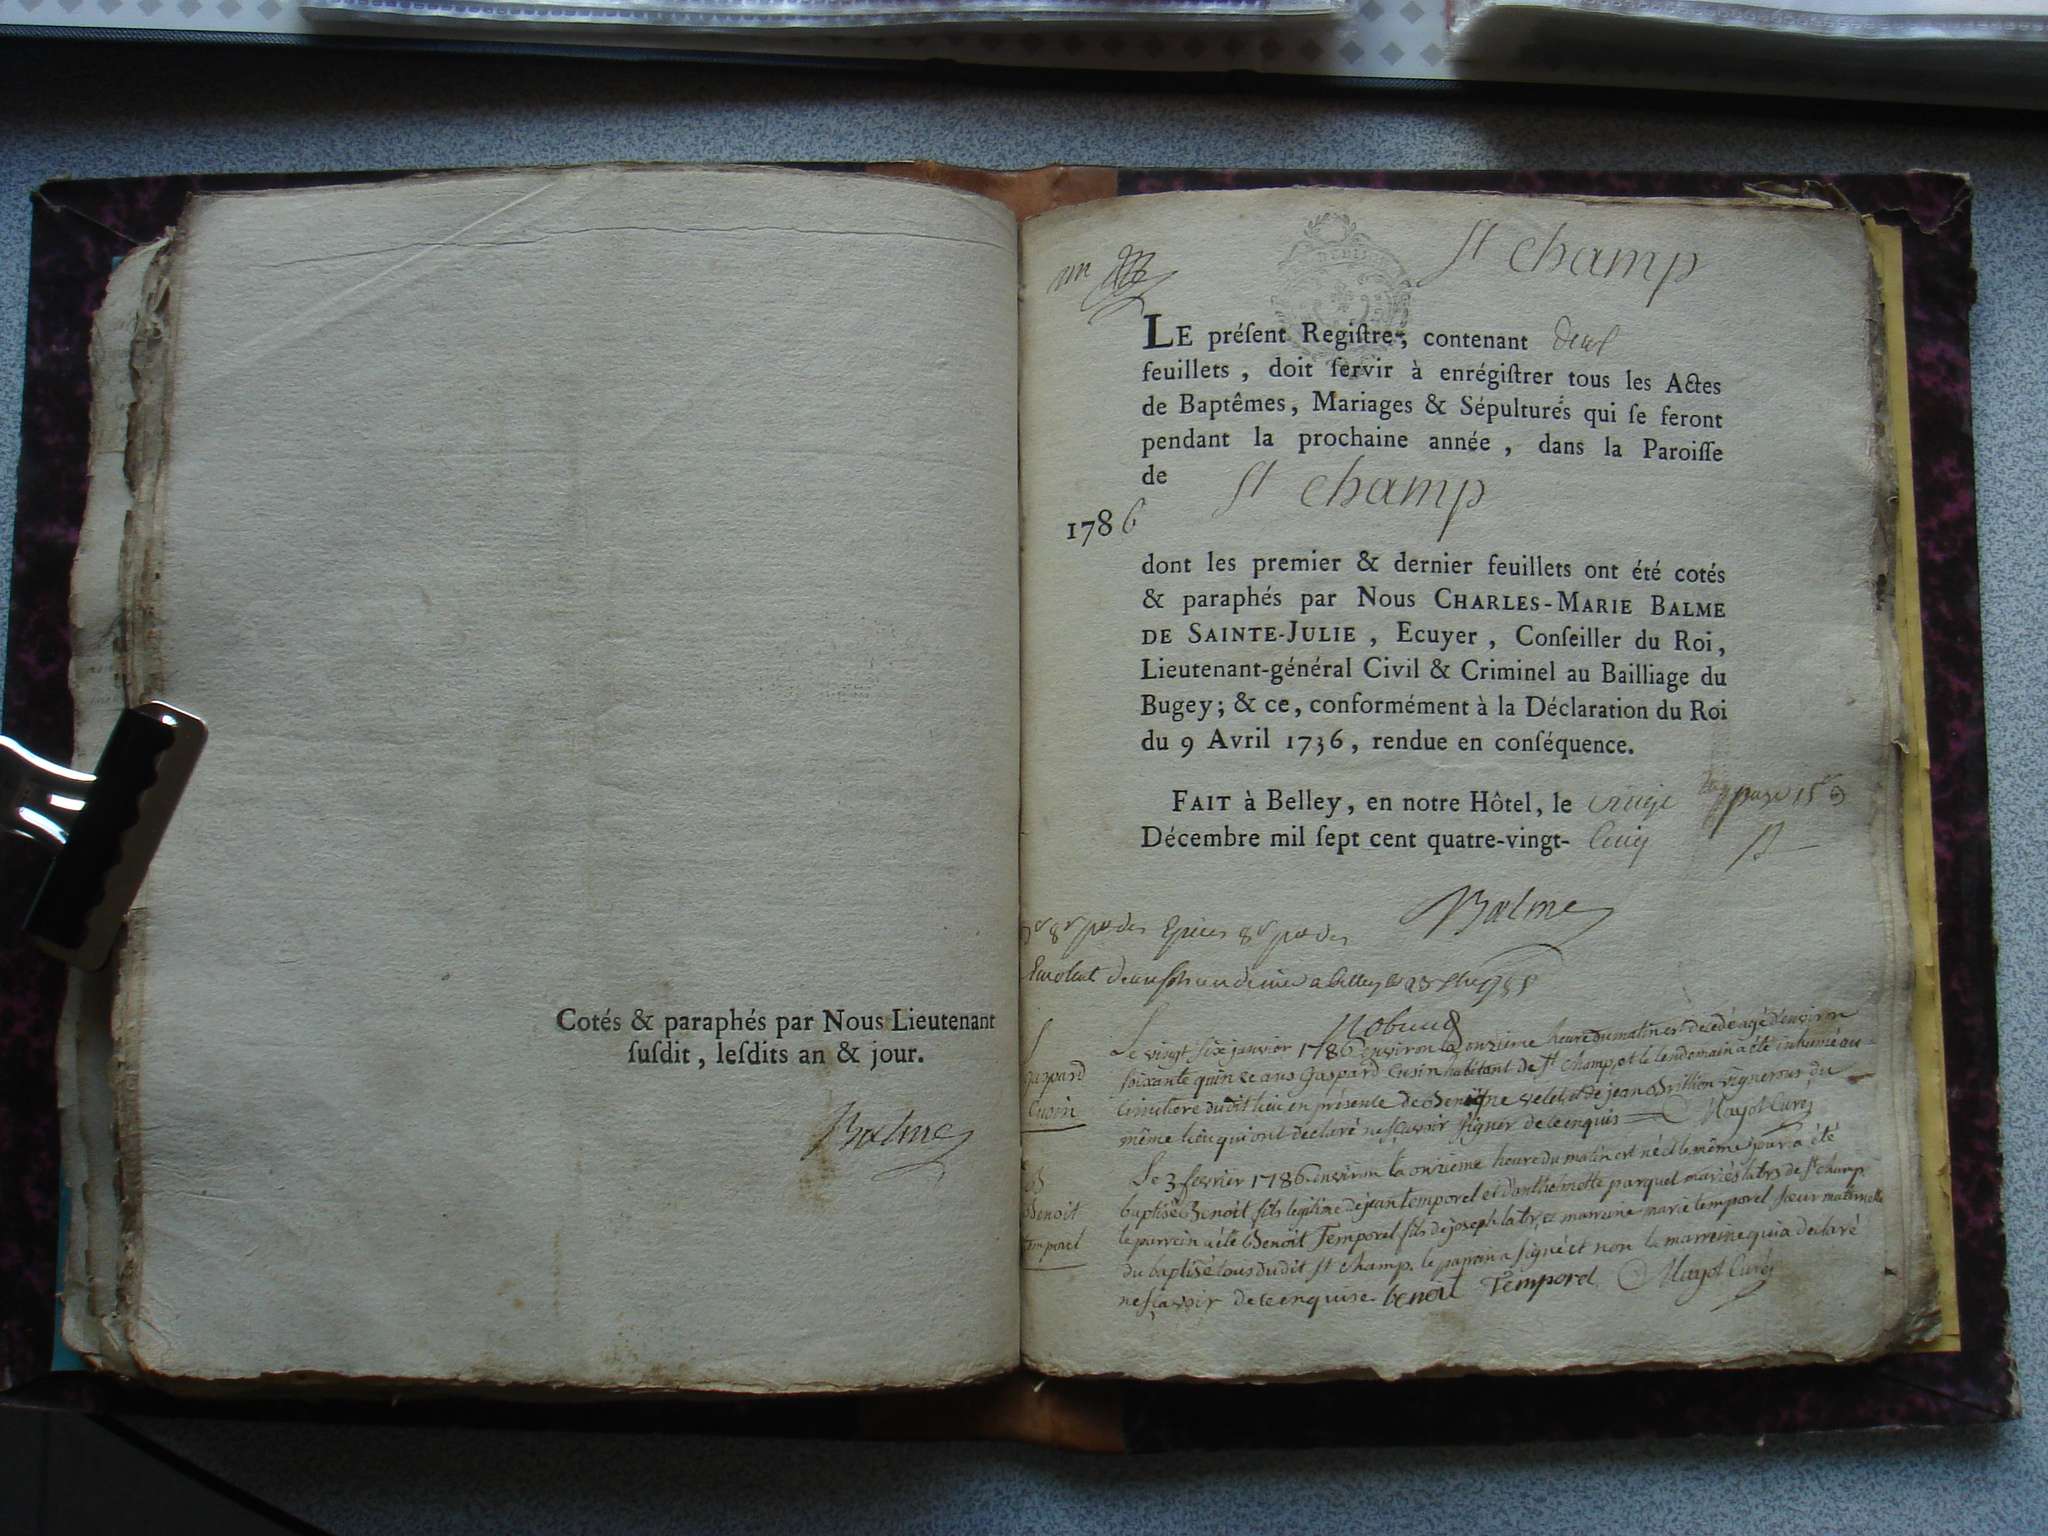 Cotés & paraphés par Nous Lieutenant
ſuſdit, leſdits an & jour.
Balme
un
St champ
LE préſent Regiſtre, contenant deux
feuillets, doit ſervir à enrégiſtrer tous les Actes
de Baptêmes, Mariages & Sépultures qui ſe feront
pendant la prochaine année, dans la Paroiſſe
de St champ
1786
dont les premier & dernier feuillets ont été cotés
& paraphés par Nous CHARLES-MARIE BALME
DE SAINTE-JULIE, Ecuyer, Conſeiller du Roi,
Lieutenant-général Civil & Criminel au Bailliage du
Bugey; & ce, conformément à la Déclaration du Roi
du 9 Avril 1736, rendue en conſéquence.
FAIT à Belley, en notre Hôtel, le vingt
Décembre mil ſept cent quatre-vingt- cinq
Balme
a belley le
S
gaspard
Cusin
Le vingt six janvier 1786 environ la onzieme heure du matin est décédé agé d'environ
soixante quinze ans Gaspard Cusin habitant de St champ, et le lendemain a été inhumé au
cimetiere dudit lieu en présence de Benoit velet et de jean Brillion vignerons du
même lieu qui ont declaré ne scavoir signer de ce enquis Mayot Curé
B
Benoit
temporel
Le 3 fevrier 1786 environ la onzieme heure du matin est né et le même jour a été
baptisé Benoit fils legitime de jean temporel et d'anthelmette parquel mariés labrs de St champ
le parrein a été Benoit Temporel fils de joseph labr, et marreine marie temporel sœur maternelle
du baptisé tous dudit St champ. le parrein a signé et non la marreine qui a declaré
ne sçavoir de ce enquise. benoit Temporel Mayot Curé